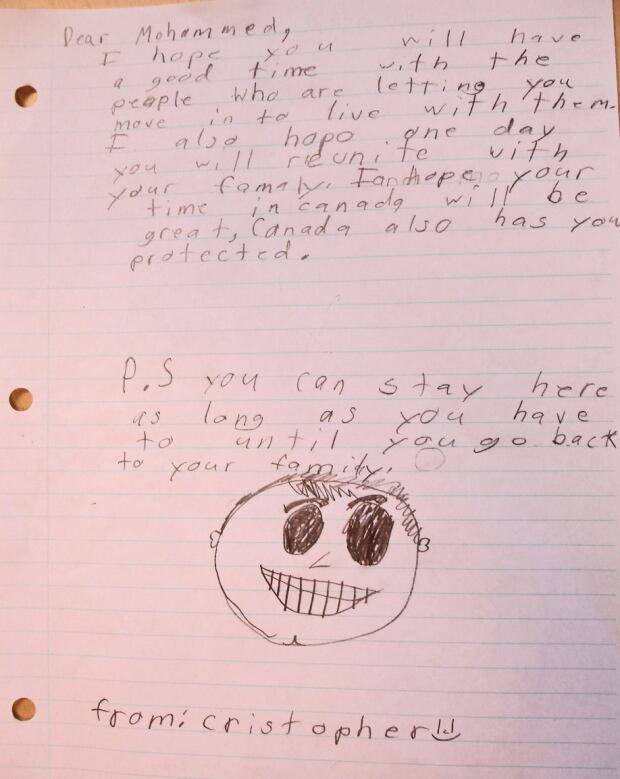 Dear Mohammed,
I hope you will have
a good time with the
people who are letting you
move in to live with them.
I also hopo one day
you will reunite with
your famaly. I hope your
time in canada will be
great, Canada also has you
protected.
P.S you can stay here
as long as you have
to until you go back
to your family.
from: cristopher